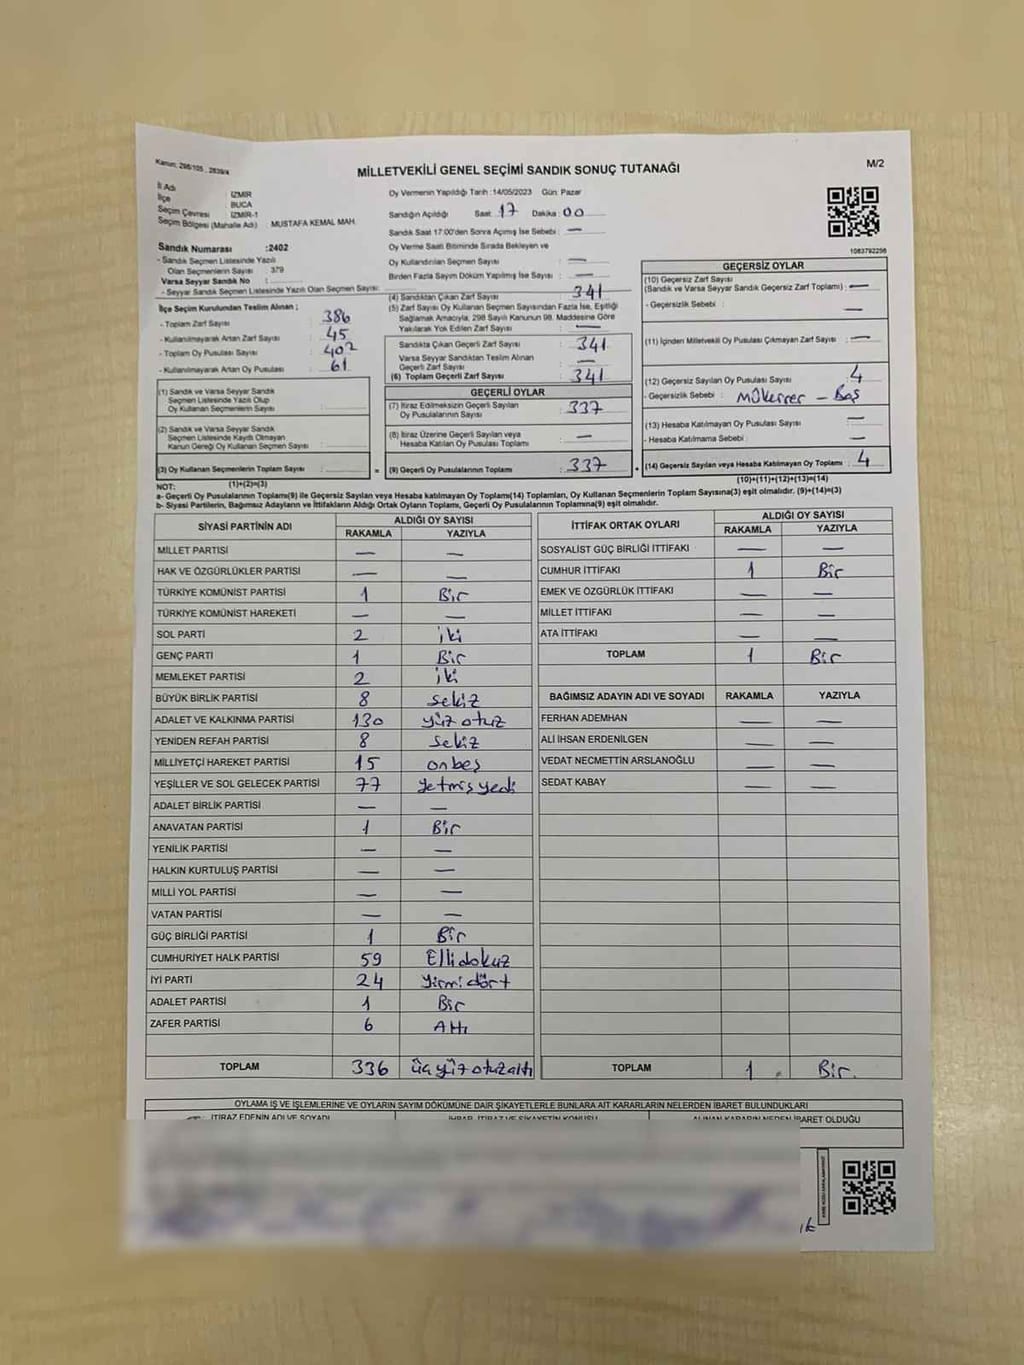 Kanun: 298/105 , 2839/4
MİLLETVEKİLİ GENEL SEÇİMİ SANDIK SONUÇ TUTANAĞI
M/2
İl Adı : İZMİR
İlçe : BUCA
Seçim Çevresi : İZMİR-1
Seçim Bölgesi (Mahalle Adı) : MUSTAFA KEMAL MAH.
Sandık Numarası :2402
- Sandık Seçmen Listesinde Yazılı
Olan Seçmenlerin Sayısı : 379
Varsa Seyyar Sandık No :
- Seyyar Sandık Seçmen Listesinde Yazılı Olan Seçmen Sayısı:
İlçe Seçim Kurulundan Teslim Alınan ;
- Toplam Zarf Sayısı : 386
- Kullanılmayarak Artan Zarf Sayısı : 45
- Toplam Oy Pusulası Sayısı : 402
- Kullanılmayarak Artan Oy Pusulası : 61
(1) Sandık ve Varsa Seyyar Sandık
Seçmen Listesinde Yazılı Olup
Oy Kullanan Seçmenlerin Sayısı :
(2) Sandık ve Varsa Seyyar Sandık
Seçmen Listesinde Kaydı Olmayan
Kanun Gereği Oy Kullanan Seçmen Sayısı :
(3) Oy Kullanan Seçmenlerin Toplam Sayısı :
(1)+(2)=(3)
Oy Vermenin Yapıldığı Tarih :14/05/2023 Gün: Pazar
Sandığın Açıldığı Saat : 17 Dakika : 00
Sandık Saat 17:00'den Sonra Açılmış İse Sebebi : —
Oy Verme Saati Bitiminde Sırada Bekleyen ve
Oy Kullandırılan Seçmen Sayısı : —
Birden Fazla Sayım Döküm Yapılmış İse Sayısı : —
(4) Sandıktan Çıkan Zarf Sayısı : 341
(5) Zarf Sayısı Oy Kullanan Seçmen Sayısından Fazla İse, Eşitliği
Sağlamak Amacıyla, 298 Sayılı Kanunun 98. Maddesine Göre
Yakılarak Yok Edilen Zarf Sayısı : —
Sandıkta Çıkan Geçerli Zarf Sayısı : 341
Varsa Seyyar Sandıktan Teslim Alınan
Geçerli Zarf Sayısı : —
(6) Toplam Geçerli Zarf Sayısı : 341
GEÇERLİ OYLAR
(7) İtiraz Edilmeksizin Geçerli Sayılan
Oy Pusulalarının Sayısı : 337
(8) İtiraz Üzerine Geçerli Sayılan veya
Hesaba Katılan Oy Pusulası Toplamı : —
= (9) Geçerli Oy Pusulalarının Toplamı : 337
1083792256
GEÇERSİZ OYLAR
(10) Geçersiz Zarf Sayısı
(Sandık ve Varsa Seyyar Sandık Geçersiz Zarf Toplamı) : —
- Geçersizlik Sebebi : —
(11) İçinden Milletvekili Oy Pusulası Çıkmayan Zarf Sayısı : —
(12) Geçersiz Sayılan Oy Pusulası Sayısı : 4
- Geçersizlik Sebebi : Mükerrer - Boş
(13) Hesaba Katılmayan Oy Pusulası Sayısı : —
- Hesaba Katılmama Sebebi : —
+ (14) Geçersiz Sayılan veya Hesaba Katılmayan Oy Toplamı : 4
(10)+(11)+(12)+(13)=(14)
NOT:
a- Geçerli Oy Pusulalarının Toplamı(9) ile Geçersiz Sayılan veya Hesaba katılmayan Oy Toplamı(14) Toplamları, Oy Kullanan Seçmenlerin Toplam Sayısına(3) eşit olmalıdır. (9)+(14)=(3)
b- Siyasi Partilerin, Bağımsız Adayların ve İttifakların Aldığı Ortak Oyların Toplamı, Geçerli Oy Pusulalarının Toplamına(9) eşit olmalıdır.
SİYASİ PARTİNİN ADI ALDIĞI OY SAYISI
RAKAMLA YAZIYLA
MİLLET PARTİSİ — —
HAK VE ÖZGÜRLÜKLER PARTİSİ — —
TÜRKİYE KOMÜNİST PARTİSİ 1 Bir
TÜRKİYE KOMÜNİST HAREKETİ — —
SOL PARTİ 2 iki
GENÇ PARTİ 1 Bir
MEMLEKET PARTİSİ 2 iki
BÜYÜK BİRLİK PARTİSİ 8 sekiz
ADALET VE KALKINMA PARTİSİ 130 yüz otuz
YENİDEN REFAH PARTİSİ 8 sekiz
MİLLİYETÇİ HAREKET PARTİSİ 15 onbeş
YEŞİLLER VE SOL GELECEK PARTİSİ 77 yetmiş yedi
ADALET BİRLİK PARTİSİ — —
ANAVATAN PARTİSİ 1 Bir
YENİLİK PARTİSİ — —
HALKIN KURTULUŞ PARTİSİ — —
MİLLİ YOL PARTİSİ — —
VATAN PARTİSİ — —
GÜÇ BİRLİĞİ PARTİSİ 1 Bir
CUMHURİYET HALK PARTİSİ 59 Elli dokuz
İYİ PARTİ 24 yirmi dört
ADALET PARTİSİ 1 Bir
ZAFER PARTİSİ 6 Altı
TOPLAM 336 üçyüz otuzaltı
İTTİFAK ORTAK OYLARI ALDIĞI OY SAYISI
RAKAMLA YAZIYLA
SOSYALİST GÜÇ BİRLİĞİ İTTİFAKI — —
CUMHUR İTTİFAKI 1 Bir
EMEK VE ÖZGÜRLÜK İTTİFAKI — —
MİLLET İTTİFAKI — —
ATA İTTİFAKI — —
TOPLAM 1 Bir
BAĞIMSIZ ADAYIN ADI VE SOYADI RAKAMLA YAZIYLA
FERHAN ADEMHAN — —
ALİ İHSAN ERDENİLGEN — —
VEDAT NECMETTİN ARSLANOĞLU — —
SEDAT KABAY — —
TOPLAM 1 Bir.
OYLAMA İŞ VE İŞLEMLERİNE VE OYLARIN SAYIM DÖKÜMÜNE DAİR ŞİKAYETLERLE BUNLARA AİT KARARLARIN NELERDEN İBARET BULUNDUKLARI
İTİRAZ EDENİN ADI VE SOYADI İHBAR, İTİRAZ VE ŞİKAYETİN KONUSU ALINAN KARARIN NEDEN İBARET OLDUĞU